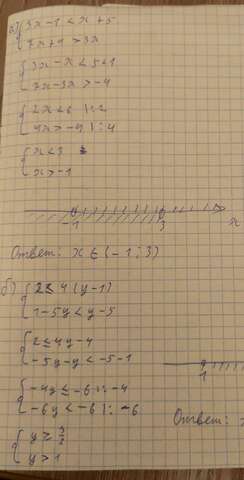 а) { 3x - 1 < x + 5
7x + 4 > 3x
{ 3x - x < 5 + 1
7x - 3x > -4
{ 2x < 6 | : 2
4x > -4 | : 4
{ x < 3
x > -1
-1 3 x
Ответ: x ∈ (-1; 3)
б) { 2 ≤ 4(y - 1)
1 - 5y < y - 5
{ 2 ≤ 4y - 4
-5y - y < -5 - 1
1
{ -4y ≤ -6 | : -4
-6y < -6 | : -6
Ответ:
{ y ≥ 3/2
y > 1